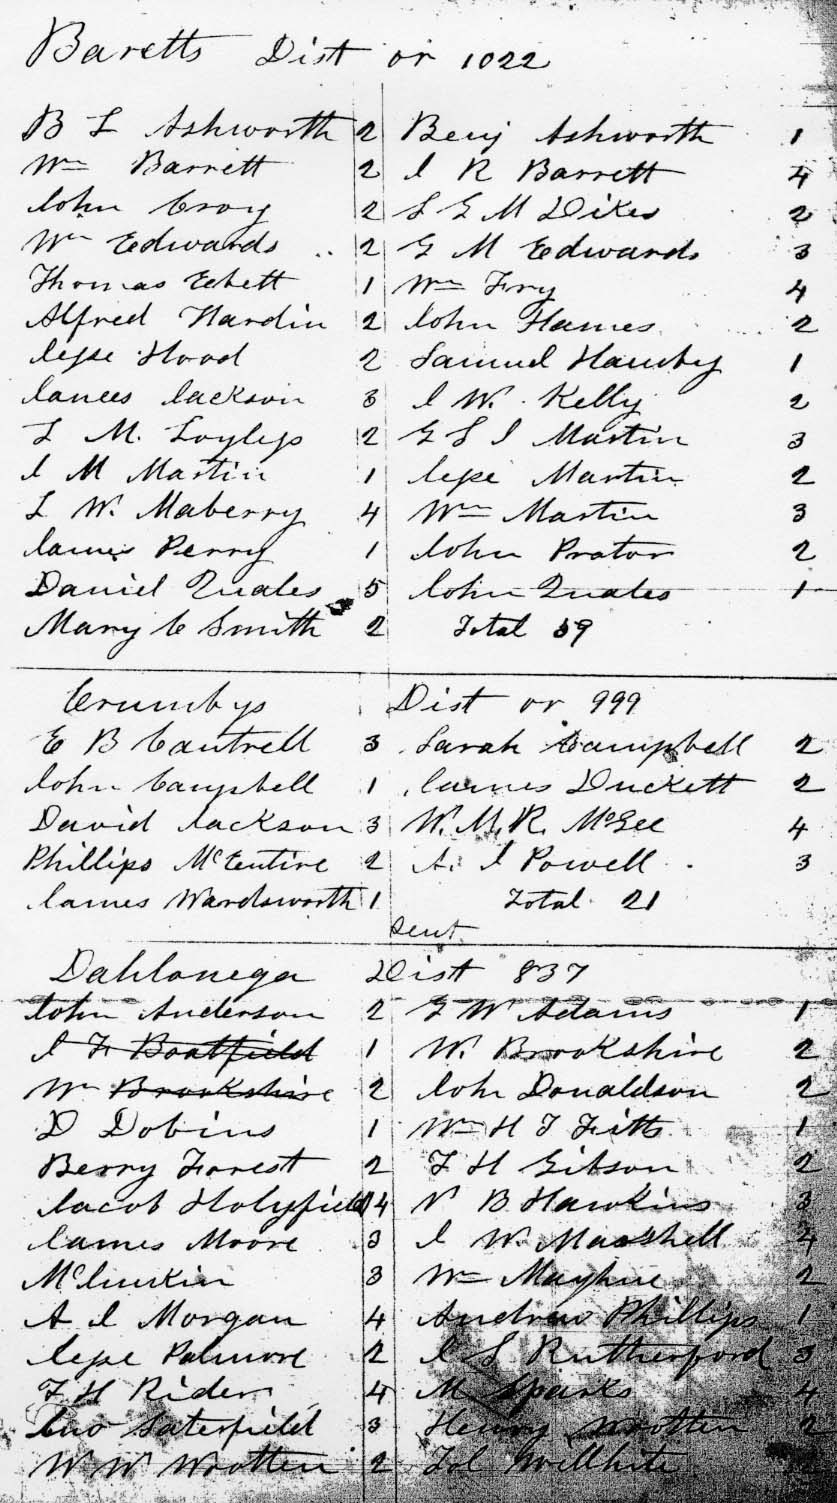 Baretts Dist or 1022
B L Ashworth 2 Benj Ashworth 1
Wm Barrett 2 J R Barrett 4
John Croy 2 L G M Dikes 2
Wm Edwards .. 2 G M Edwards 3
Thomas Ezbett 1 Wm Fry 4
Alfred Hardin 2 John Hames 2
Jesse Hood 2 Samuel Hamby 1
James Jackson 3 J W. Kelly 2
L M. Loyless 2 G L J Martin 3
J M Martin 1 Jesse Martin 2
L W. Maberry 4 Wm Martin 3
James Perry 1 John Prator 2
Daniel Quales 5 John Quales 1
Mary C Smith 2 Total 59
Crumbys Dist or 999
E B Cantrell 3 Sarah Campbell 2
John Campbell 1 James Duckett 2
David Jackson 3 W. M. R. McGee 4
Phillips McEntire 2 A. J Powell . 3
James Wardsworth 1 Total 21
sent
Dahlonega Dist 837
John Anderson 2 G W Adams 1
J F Boatfield 1 W. Brookshire 2
Wm Brookshire 2 John Donaldson 2
D Dobins 1 Wm H T Fitts 1
Berry Forrest 2 F H Gibson 2
Jacob Holyfield 4 N B Hawkins 3
James Moore 3 J W. Marshell
McJunkin 3 Wm Mayhue 2
A J Morgan 4 Andrew Phillips 1
Jesse Palmore 2 J L Rutherford 3
F H Rider 4 M Sparks 4
Jno Saterfield 3 Henry Wrotten 2
W W Wrotten 2 Willhite